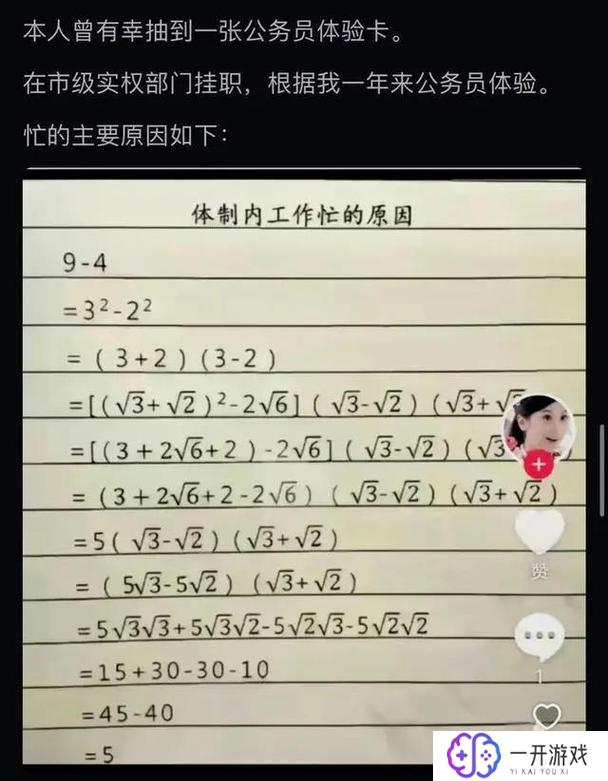 本人曾有幸抽到一张公务员体验卡。
在市级实权部门挂职，根据我一年来公务员体验。
忙的主要原因如下：
体制内工作忙的原因
9-4
=3²-2²
=（3+2）（3-2）
=[(√3+√2)²-2√6]（√3-√2）（√3+√2
=[(3+2√6+2)-2√6]（√3-√2）（√3
=（3+2√6+2-2√6）（√3-√2）（√3+√2）
=5（√3-√2）（√3+√2）
=（5√3-5√2）（√3+√2）
=5√3√3+5√3√2-5√2√3-5√2√2
=15+30-30-10
=45-40
=5
赞
1
一开游戏
YI KAI YOU XI